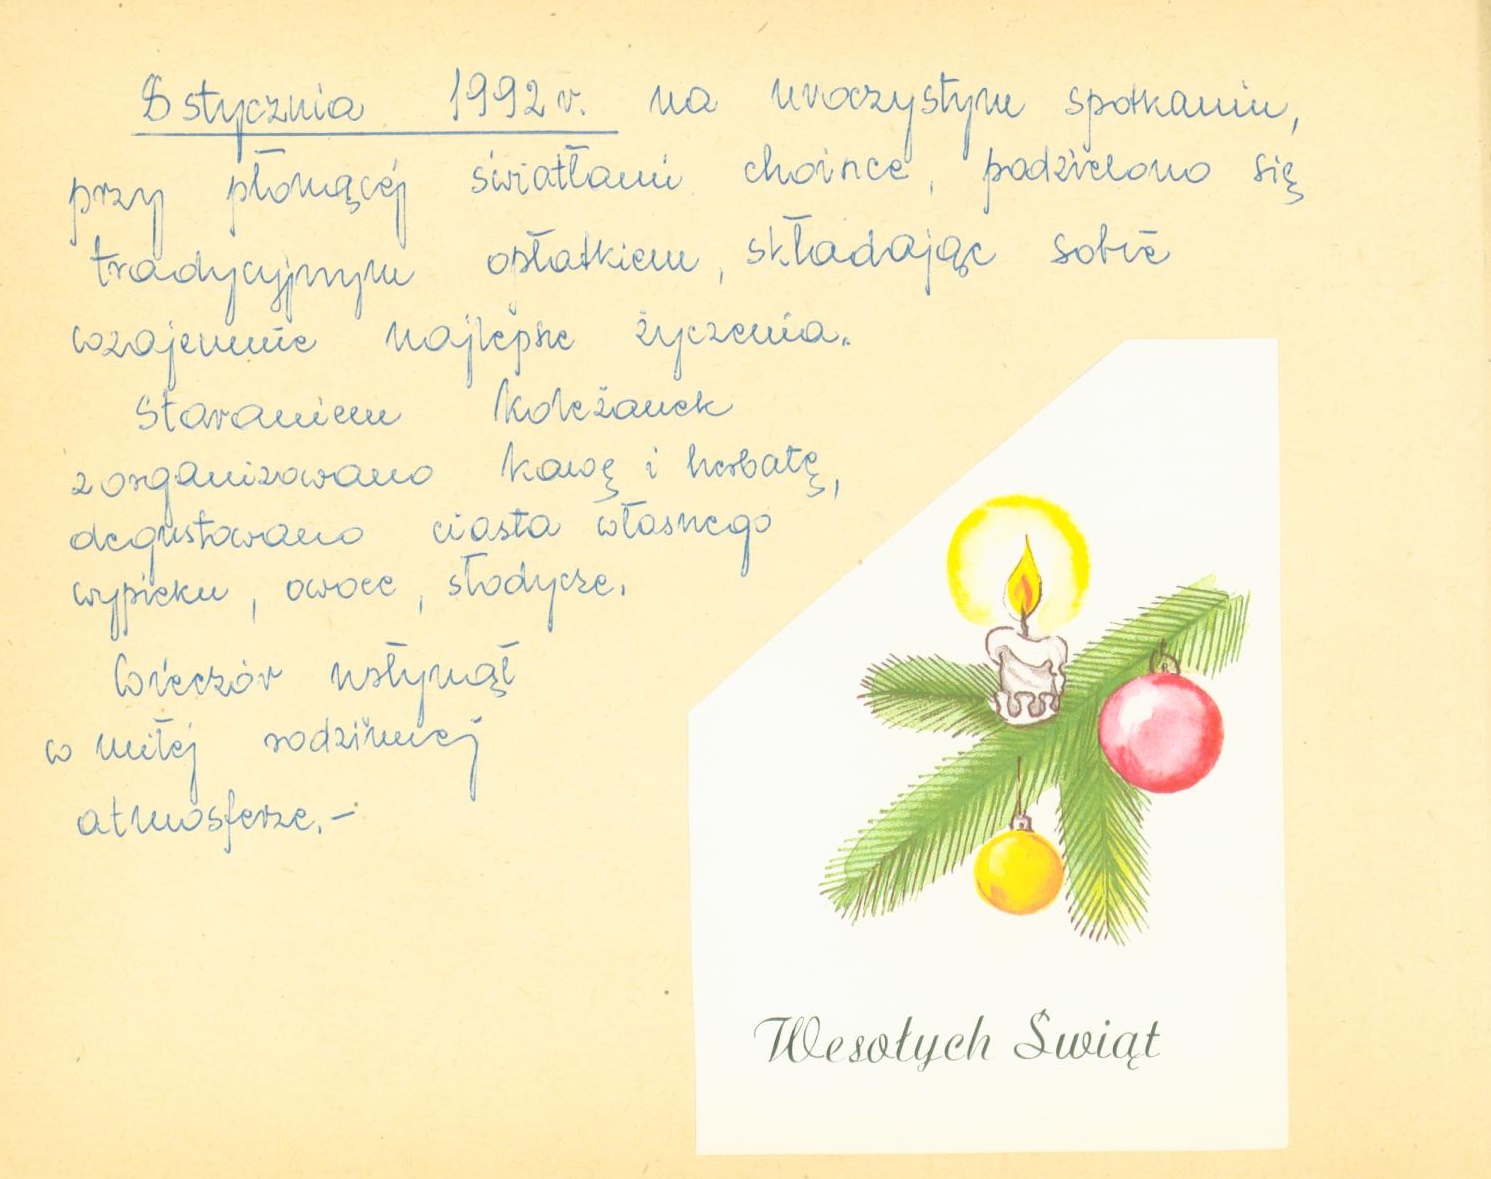 8 stycznia 1992 r. na uroczystym spotkaniu,
przy płonącej światłami choince, podzielono się
tradycyjnym opłatkiem, składając sobie
wzajemnie najlepsze życzenia.
Staraniem koleżanek
zorganizowano kawę i herbatę,
degustowano ciasta własnego
wypieku, owoce, słodycze.
Wieczór upłynął
w miłej rodzinnej
atmosferze.-
Wesołych Świąt